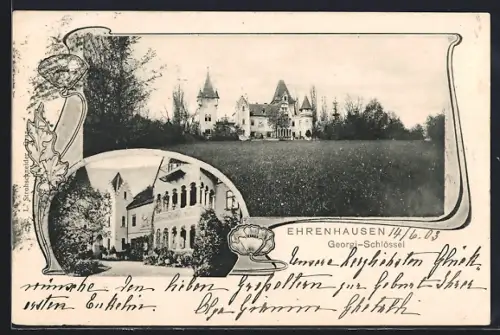 EHRENHAUSEN 14/6.03
Georgi-Schlössel
Unsere herzlichsten Glück-
wünsche den lieben Großeltern zur Geburt Ihrer
ersten Enkelin.
Olga Grimm